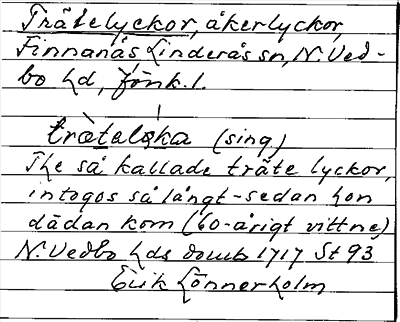 Trätelyckor, åkerlyckor,
Finnanås Linderås sn, N. Ved-
bo hd, Jönk. l.
trætaløka (sing)
The så kallade träte lyckor,
intogos så långt-sedan hon
dädan kom (60-årigt vittne)
N. Vedbo hds domb 1717 St 93
Erik Lönnerholm